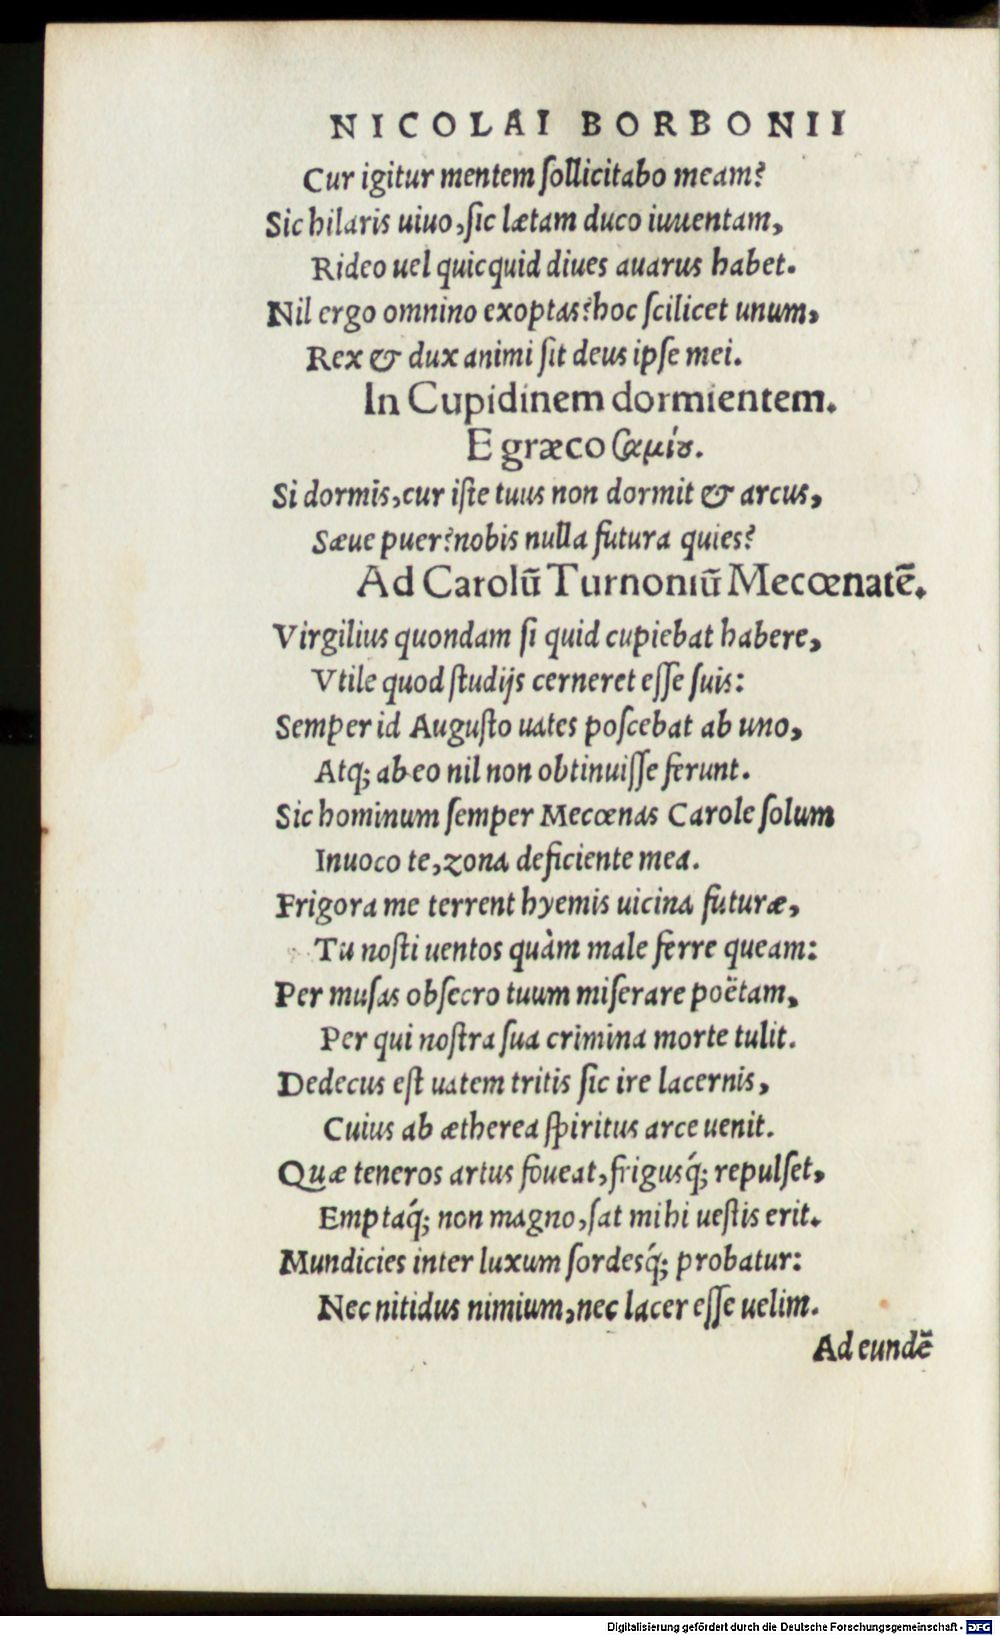 NICOLAI BORBONII
Cur igitur mentem ſollicitabo meam?
Sic hilaris uiuo, ſic lætam duco iuuentam,
Rideo uel quicquid diues auarus habet.
Nil ergo omnino exoptas? hoc ſcilicet unum,
Rex & dux animi ſit deus ipſe mei.
In Cupidinem dormientem.
E græco
Si dormis, cur iſte tuus non dormit & arcus,
Sæue puer? nobis nulla futura quies?
Ad Carolū Turnoniū Mecœnatē.
Virgilius quondam ſi quid cupiebat habere,
Vtile quod ſtudijs cerneret eſſe ſuis:
Semper id Auguſto uates poſcebat ab uno,
Atq; ab eo nil non obtinuiſſe ferunt.
Sic hominum ſemper Mecœnas Carole ſolum
Inuoco te, zona deficiente mea.
Frigora me terrent hyemis uicina futuræ,
Tu noſti uentos quàm male ferre queam:
Per muſas obſecro tuum miſerare poëtam,
Per qui noſtra ſua crimina morte tulit.
Dedecus eſt uatem tritis ſic ire lacernis,
Cuius ab ætherea ſpiritus arce uenit.
Quæ teneros artus foueat, frigusq́; repulſet,
Emptaq́; non magno, ſat mihi ueſtis erit.
Mundicies inter luxum ſordesq́; probatur:
Nec nitidus nimium, nec lacer eſſe uelim.
Ad eundē
Digitalisierung gefördert durch die Deutsche Forschungsgemeinschaft - DFG